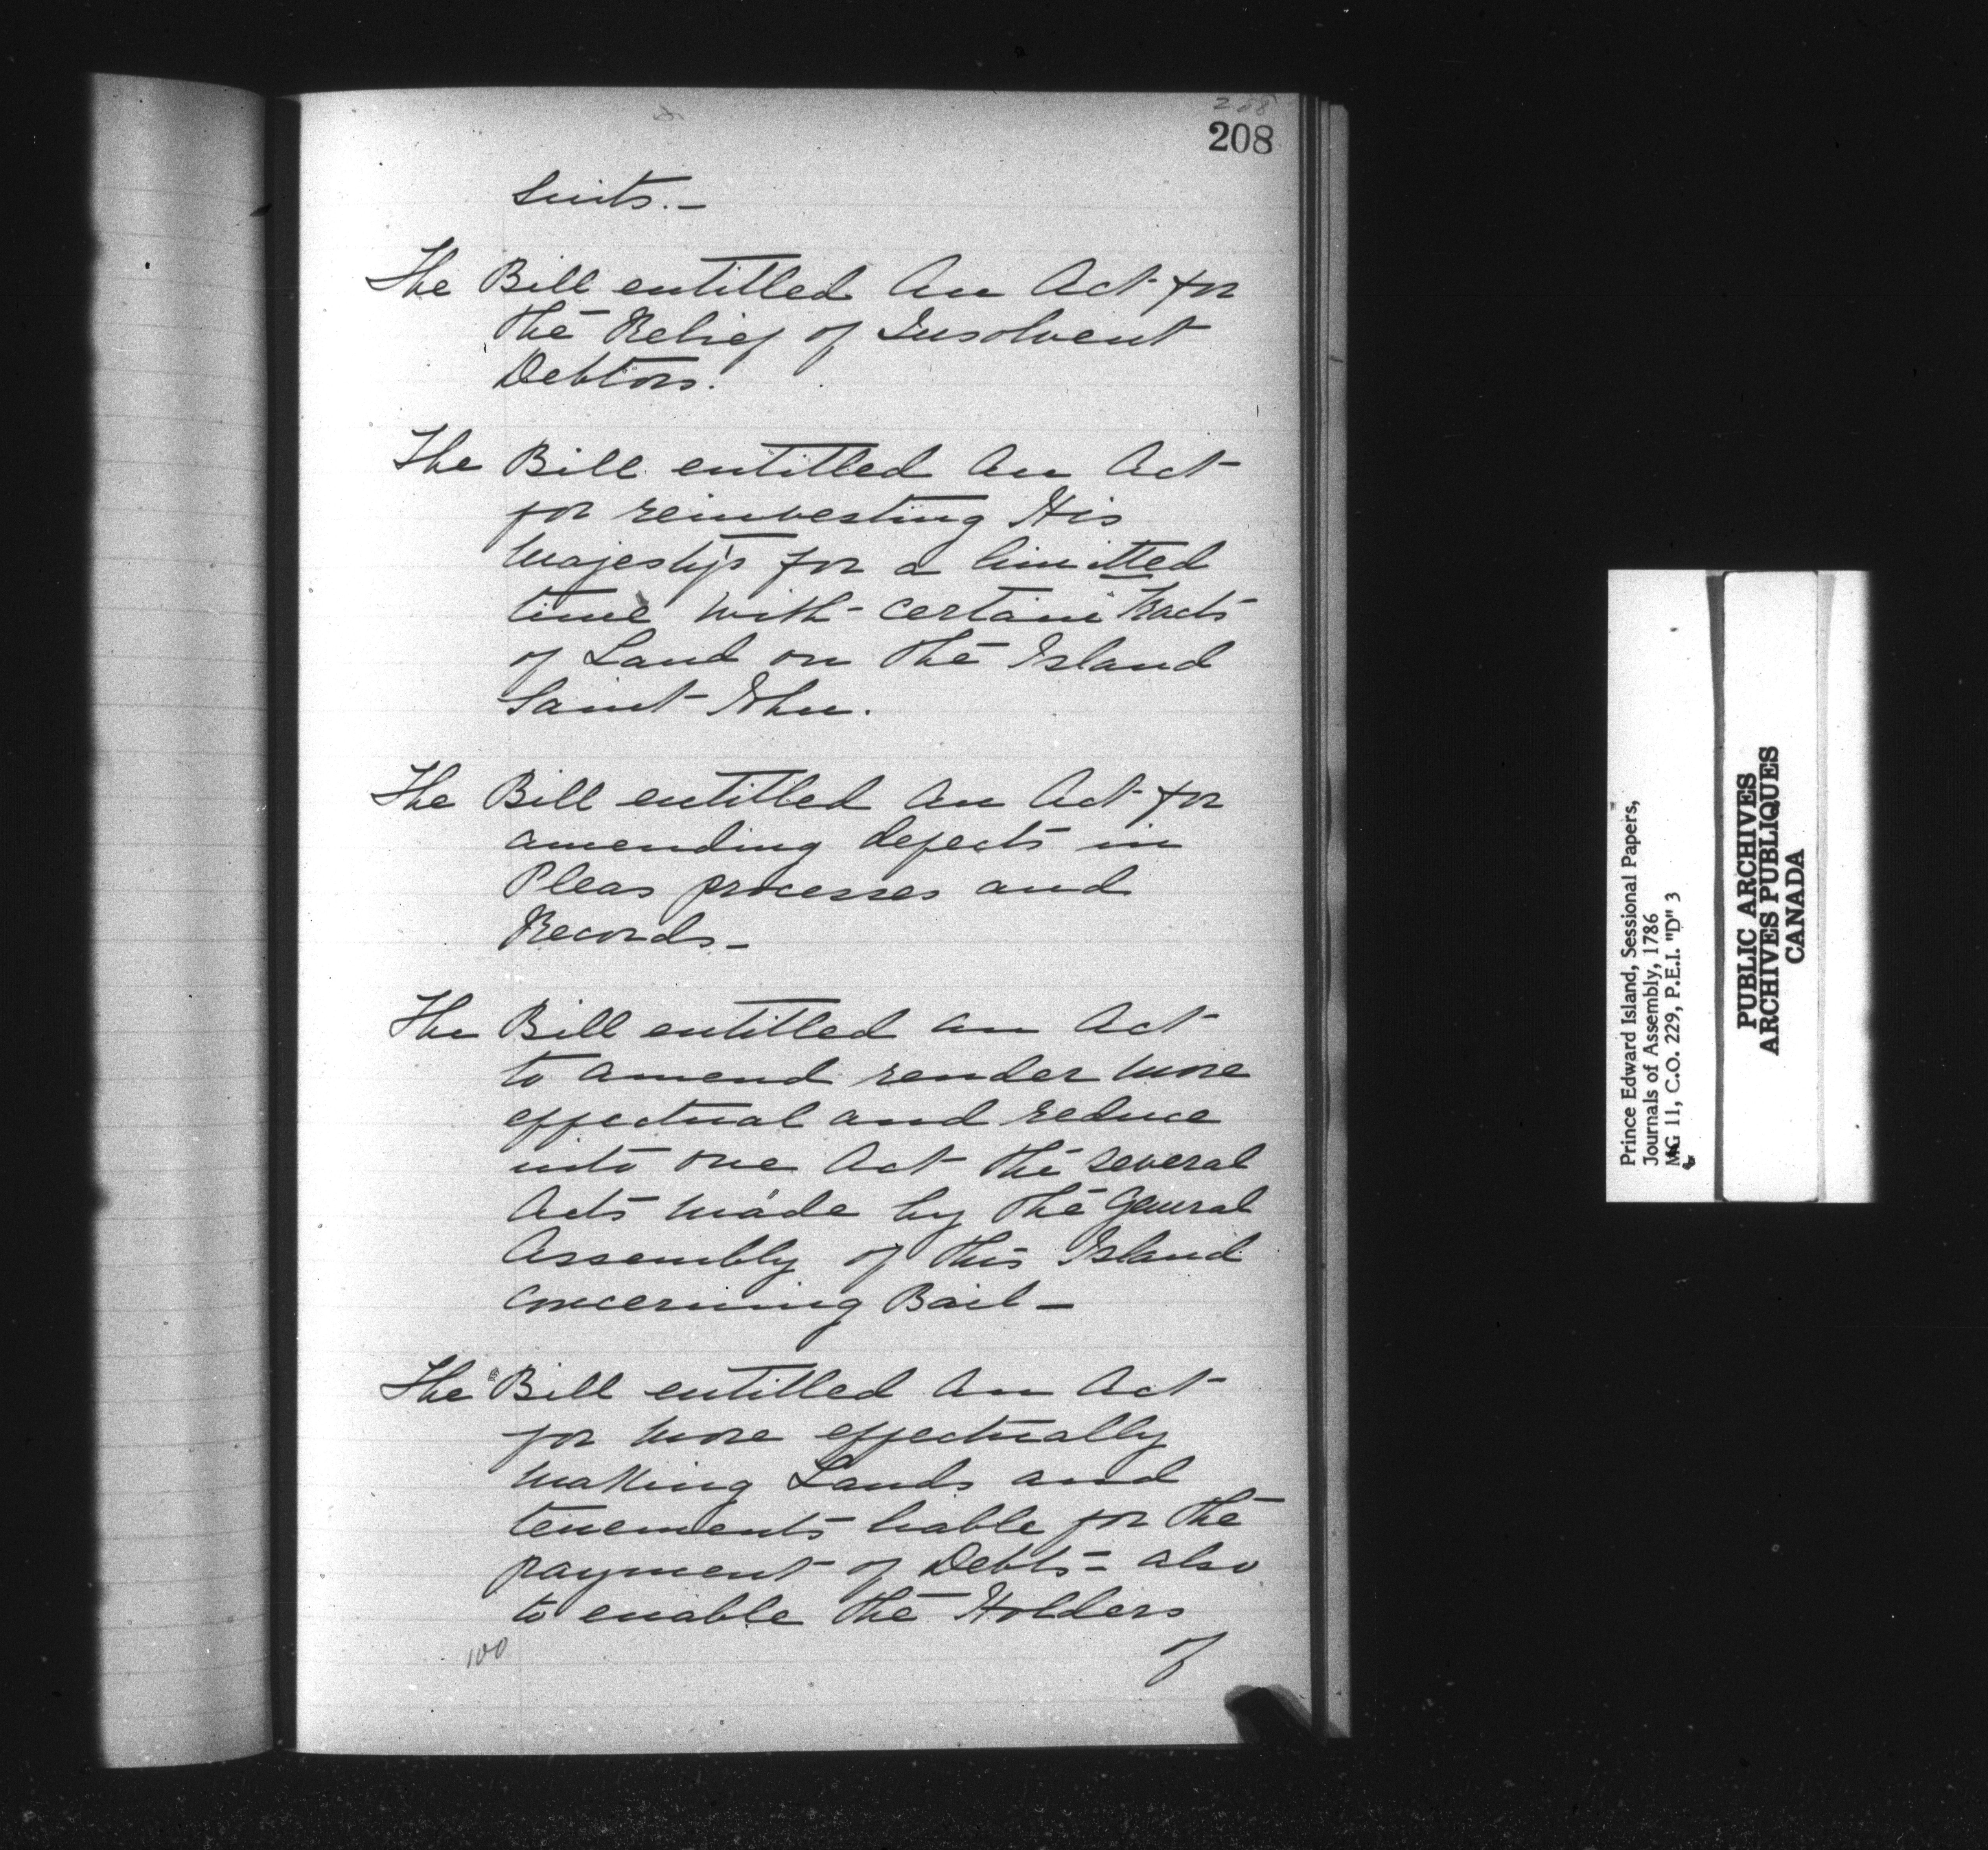 208
208
Suits.-
The Bill entitled An Act for
the Relief of Insolvent
Debtors.
The Bill entitled An Act
for reinvesting His
Majesty's for a limitted
time with certain tracts
of Land on the Island
Saint John.
The Bill entitled An Act for
amending defects in
Pleas processes and
Records-
The Bill entitled an Act
to amend render more
effectual and reduce
into one Act the several
Acts made by the General
Assembly of this Island
concerning Bail-
The Bill entitled An Act
for more effectually
making Lands and
tenements liable for the
payment of Debts = also
to enable the Holders
of
100
Prince Edward Island, Sessional Papers,
Journals of Assembly, 1786
MG 11, C.O. 229, P.E.I. "D" 3
PUBLIC ARCHIVES
ARCHIVES PUBLIQUES
CANADA